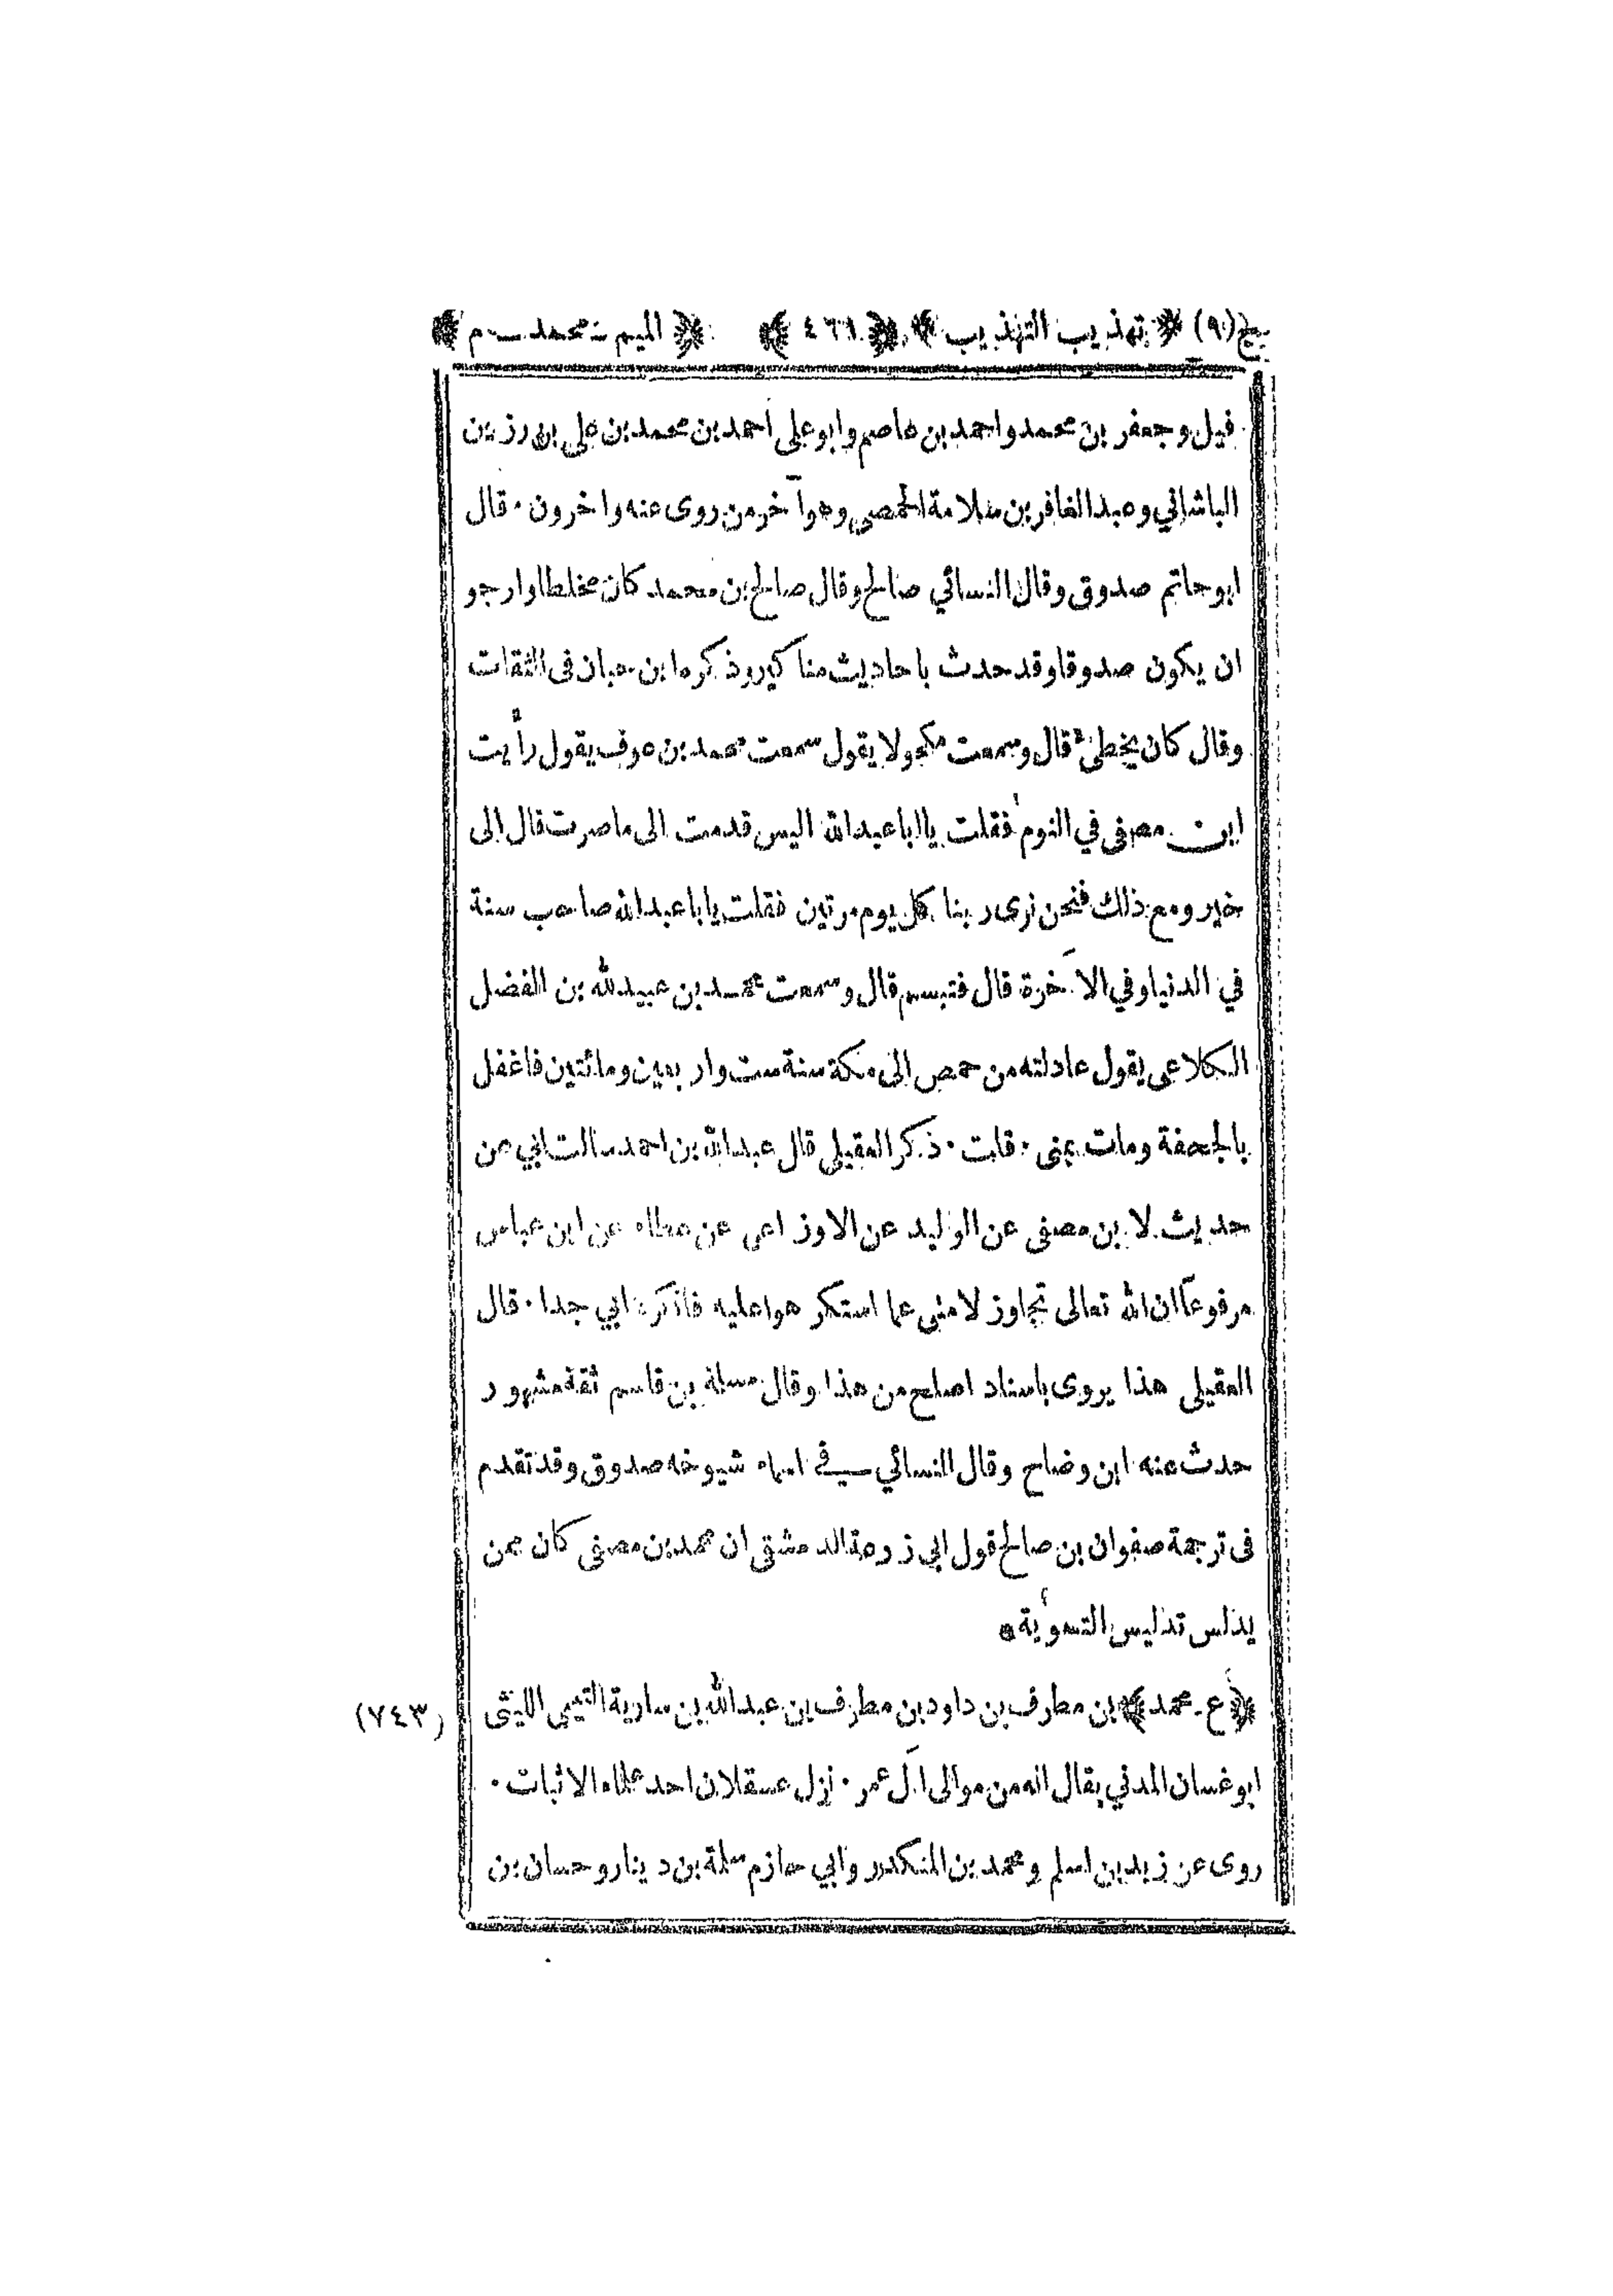 ج (٩) ﴿ تهذيب التهذيب ﴾ ﴿ ٤٦١ ﴾ ﴿ الميم - محمد - م ﴾
فيل وجعفر بن محمد واحمد بن عاصم وابو على احمد بن محمد بن على بن رزين
الباشاني وعبد الغافر بن سلامة الحمصي وهو آخر من روى عنه واخرون · قال
ابو حاتم صدوق وقال النسائي صالح وقال صالح بن محمد كان مخلطا وارجو
ان يكون صدوقا وقد حدث باحاديث مناكير وذكره ابن حبان فى الثقات
وقال كان يخطئ قال وسمعت مكحولا يقول سمعت محمد بن عوف يقول رأيت
ابن مصفى في النوم فقلت يا ابا عبد الله اليس قدمت الى ما صرت قال الى
خير ومع ذلك فنحن نرى ربنا كل يوم مرتين فقلت يا با عبد الله صاحب سنة
في الدنيا وفي الآخرة قال فتبسم قال وسمعت محمد بن عبيد الله بن الفضل
الكلاعى يقول عادلته من حمص الى مكة سنة ست واربعين ومائتين فاغفل
بالجحفة ومات بمنى · قلت · ذكر العقيلى قال عبد الله بن احمد سالت ابي عن
حديث لابن مصفى عن الوليد عن الاوزاعى عن عطاء عن ابن عباس
مرفوعا ان الله تعالى تجاوز لامتى عما استكرهوا عليه فانكره ابي جدا · قال
العقيلى هذا يروى باسناد اصلح من هذا وقال مسلمة بن قاسم ثقة مشهور
حدث عنه ابن وضاح وقال النسائي في اسماء شيوخه صدوق وقد تقدم
فى ترجمة صفوان بن صالح قول ابي زرعة الدمشقى ان محمد بن مصفى كان ممن
يدلس تدليس التسوية ٭
﴿ ع - محمد ﴾ بن مطرف بن داود بن مطرف بن عبد الله بن سارية التيمى الليثى (٧٤٣)
ابو غسان المدني يقال انه من موالى آل عمر · نزل عسقلان احد علماء الاثبات ·
روى عن زيد بن اسلم ومحمد بن المنكدر وابي حازم سلمة بن دينار وحسان بن